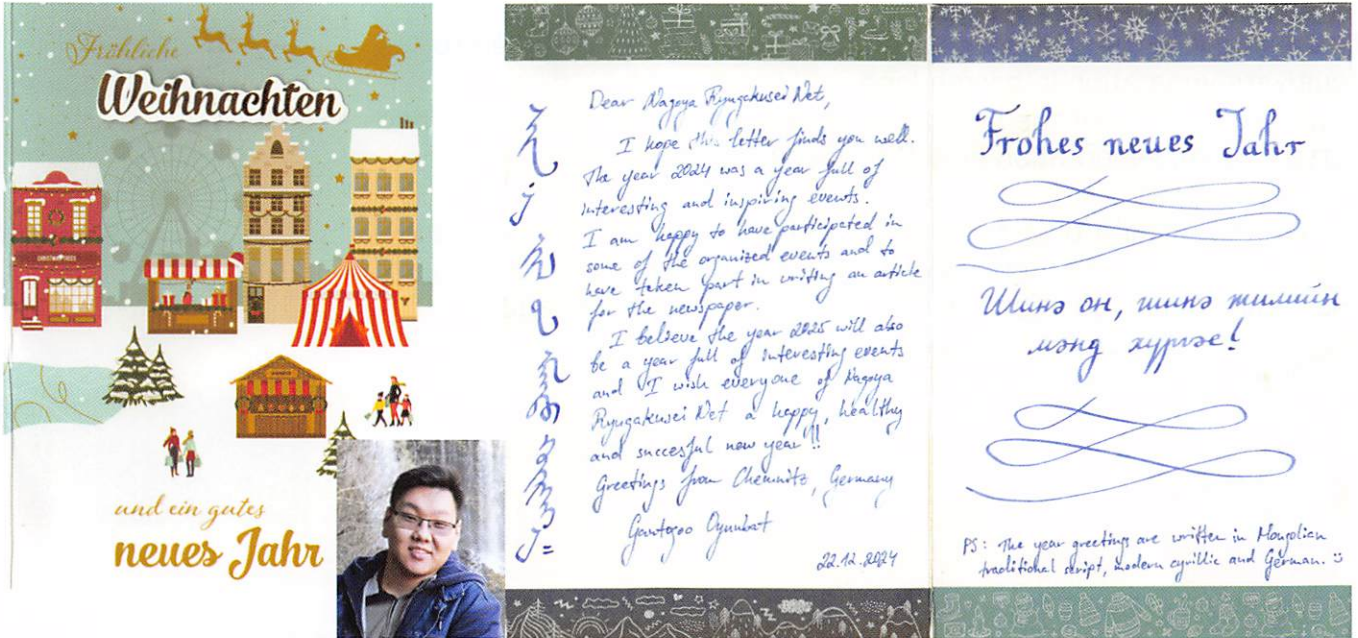 Fröhliche
Weihnachten
CHRISTMAS TREES
und ein gutes
neues Jahr
Dear Nagoya Ryugakusei Net,
I hope this letter finds you well.
The year 2024 was a year full of
interesting and inspiring events.
I am happy to have participated in
some of the organized events and to
have taken part in writing an article
for the newspaper.
I believe the year 2025 will also
be a year full of interesting events
and I wish everyone of Nagoya
Ryugakusei Net a happy, healthy
and succesful new year!!
Greetings from Chemnitz, Germany
Gantogoo Oyunbat
22.12.2024
Frohes neues Jahr
Шинэ он, шинэ жилийн
мэнд хүргэе!
PS: The year greetings are written in Mongolian
traditional script, modern cyrillic and German. :)